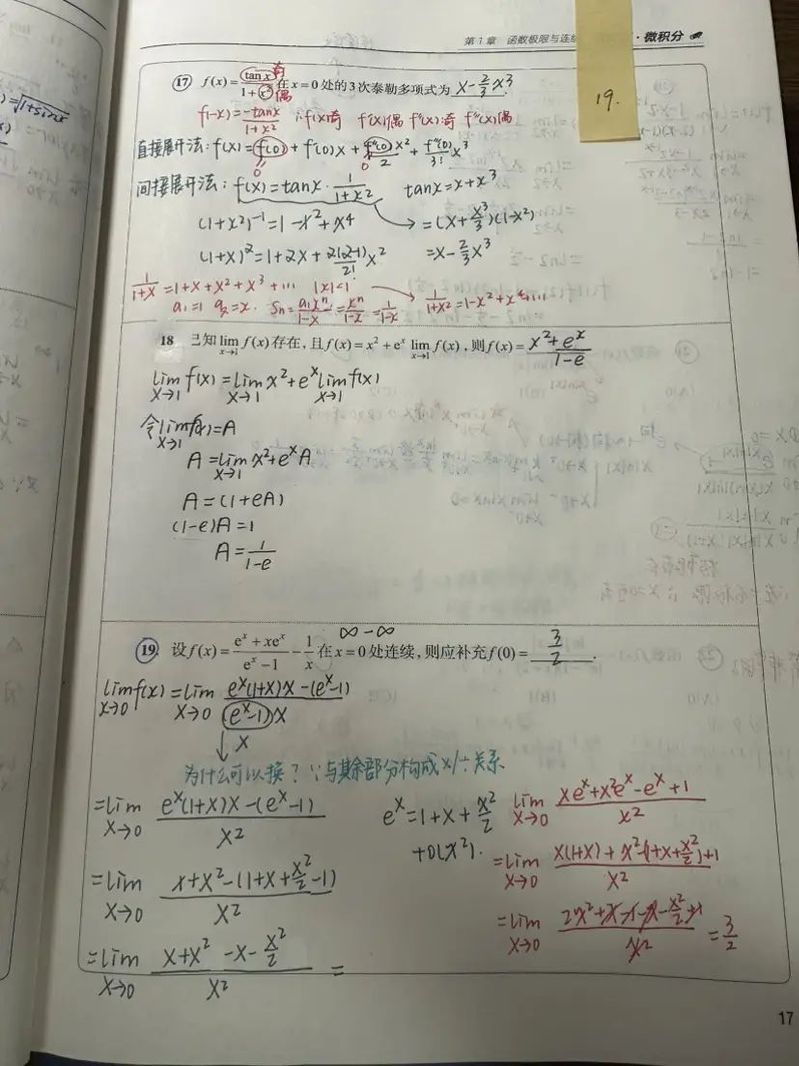 第1章 函数极限与连续 · 微积分
19.
(17) f(x)=tan x/(1+x²) 在 x=0 处的3次泰勒多项式为 x-2/3x³.
奇
偶
f(-x)=-tanx/(1+x²) ∴f(x)奇 f'(x)偶 f''(x)奇 f'''(x)偶
直接展开法: f(x)=f(0)+f'(0)x+f''(0)x²/2+f'''(0)/3! x³
0 0
间接展开法: f(x)=tanx·1/(1+x²) tanx=x+x³
(1+x²)⁻¹=1-x²+x⁴ → =(x+x³/3)(1-x²)
(1+x)²=1+2x+2(2-1)/2! x² =x-2/3x³
1/(1+x)=1+x+x²+x³+... |x|<1 → 1/(1+x²)=1-x²+x⁴+...
a₁=1 q=x. Sn=a₁xⁿ/(1-x)=xⁿ/(1-x)=1/(1-x)
18 已知 lim x→1 f(x) 存在,且 f(x)=x²+eˣ lim x→1 f(x),则 f(x)=x²+eˣ/(1-e)
lim x→1 f(x)=lim x→1 x²+eˣ lim x→1 f(x)
令 lim x→1 f(x)=A
A=lim x→1 x²+eˣA
A=(1+eA)
(1-e)A=1
A=1/(1-e)
∞-∞
(19) 设 f(x)=(eˣ+xeˣ)/(eˣ-1)-1/x 在 x=0 处连续,则应补充 f(0)=3/2.
lim x→0 f(x)=lim x→0 (eˣ(1+x)x-(eˣ-1))/((eˣ-1)x)
↓x
为什么可以换?∵与其余部分构成×/÷关系
=lim x→0 (eˣ(1+x)x-(eˣ-1))/x²
eˣ=1+x+x²/2
+o(x²).
=lim x→0 (x+x²-(1+x+x²/2-1))/x²
=lim x→0 (x+x²-x-x²/2)/x² =
lim x→0 (xeˣ+x²eˣ-eˣ+1)/x²
=lim x→0 (x(1+x)+x²-(1+x+x²/2)+1)/x²
=lim x→0 (2x²+x-1-x-x²/2+1)/x²=3/2
17